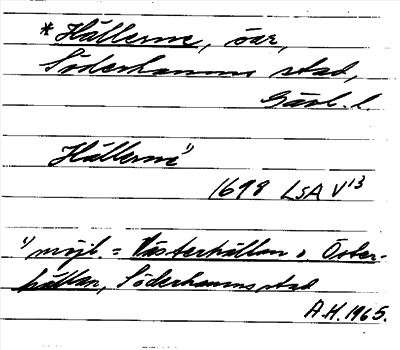 *Hällerne, öar,
Söderhamns stad,
Gävl. l.
Hällerne¹⁾
1698 LSA V¹³
¹⁾ möjl. = Västerhällan o. Öster-
hällan, Söderhamns stad
A.H. 1965.